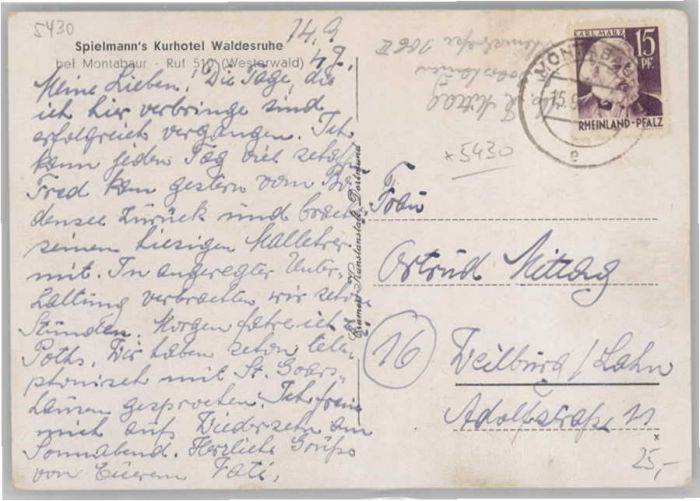 5430
14.9
49.
Spielmann's Kurhotel Waldesruhe
bei Montabaur - Ruf 510 (Westerwald)
Meine Lieben! Die Tage, die
ich hier verbringe sind
erfolgreich vergangen. Ich
kann jeden Tag viel schaffen
Fred kam gestern vom Bo-
densee zurück und brachte
seinen hiesigen
mit. In angeregter Unter-
haltung verbrachten wir schöne
Stunden. Morgen fahre ich zu
Poths. Wir haben schon tele-
phonisch mit St. Goars-
hausen gesprochen. Ich freue
mich aufs Wiedersehn am
Sonnabend. Herzliche Grüße
von Euerem Vati.
Cramers Kunstanstalt, Dortmund
KARL MARX
15
PF.
RHEINLAND-PFALZ
MONTABAUR
15.
e
Mittag
x 5430
Frau
Ortrud Mittag
16
Weilburg/Lahn
Adolfstraße 11
x
25,-